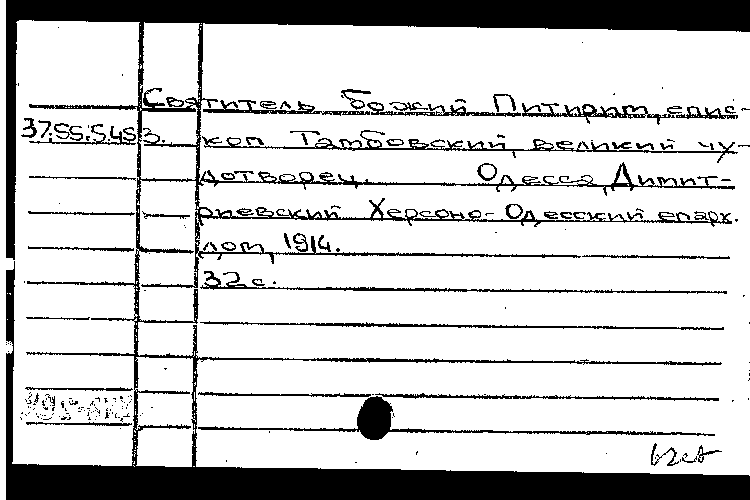 Святитель Божий Питирим, епис-
37.55.5.453. коп Тамбовский, великий чу-
дотворец. Одесса, Димит-
риевский Херсоно-Одесский епарх.
дом, 1914.
32 с.